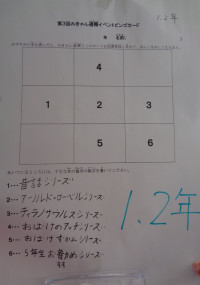 1.2年
第3回みきゃん通帳イベントビンゴカード
年 名前
4
1 2 3
5 6
1・・・昔話シリーズ
2・・・アーノルド・ローベルシリーズ
3・・・ティラノサウルスシリーズ
4・・・おばけのアッチシリーズ
5・・・おばけずかんシリーズ
6・・・5年生お薦めシリーズ
1.2年